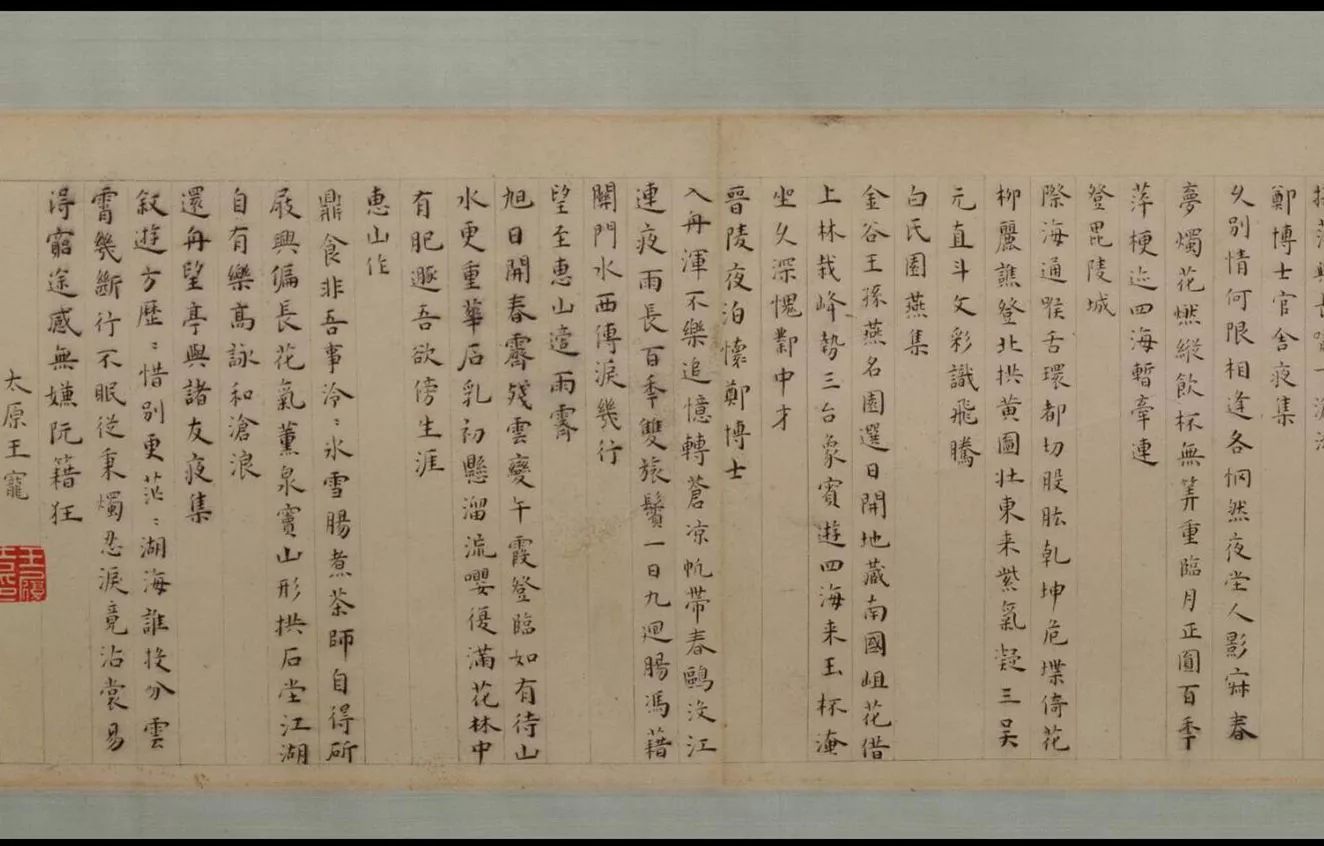 鄭博士官舍夜集
久別情何限相逢各惘然夜堂人影寂春
夢燭花燃縱飲杯無筭重臨月正圓百季
萍梗迹四海暫牽連
登毘陵城
際海通喉舌環都切股肱乾坤危堞倚花
柳麗譙登北拱黃圖壯東来紫氣凝三吴
元直斗文彩識飛騰
白氏園燕集
金谷王孫燕名園選日開地藏南國岨花借
上林栽峰勢三台象賓遊四海来玉杯淹
坐久深愧鄴中才
晉陵夜泊懷鄭博士
入舟渾不樂追憶轉蒼凉帆帶春鷗没江
連夜雨長百季雙旅鬢一日九迴腸馮藉
關門水西傳淚幾行
望至惠山遣雨霽
旭日開春霽殘雲變午霞登臨如有待山
水更重華石乳初懸溜流嚶復滿花林中
有肥遯吾欲傍生涯
惠山作
鼎食非吾事泠〻氷雪腸煮茶師自得斫
屐興偏長花氣薰泉竇山形拱石堂江湖
自有樂高詠和滄浪
還舟望亭與諸友夜集
叙遊方歷〻惜别更茫〻湖海誰投分雲
霄幾斷行不眠從秉燭忍淚竟沾裳易
得窮途感無嫌阮籍狂
太原王寵